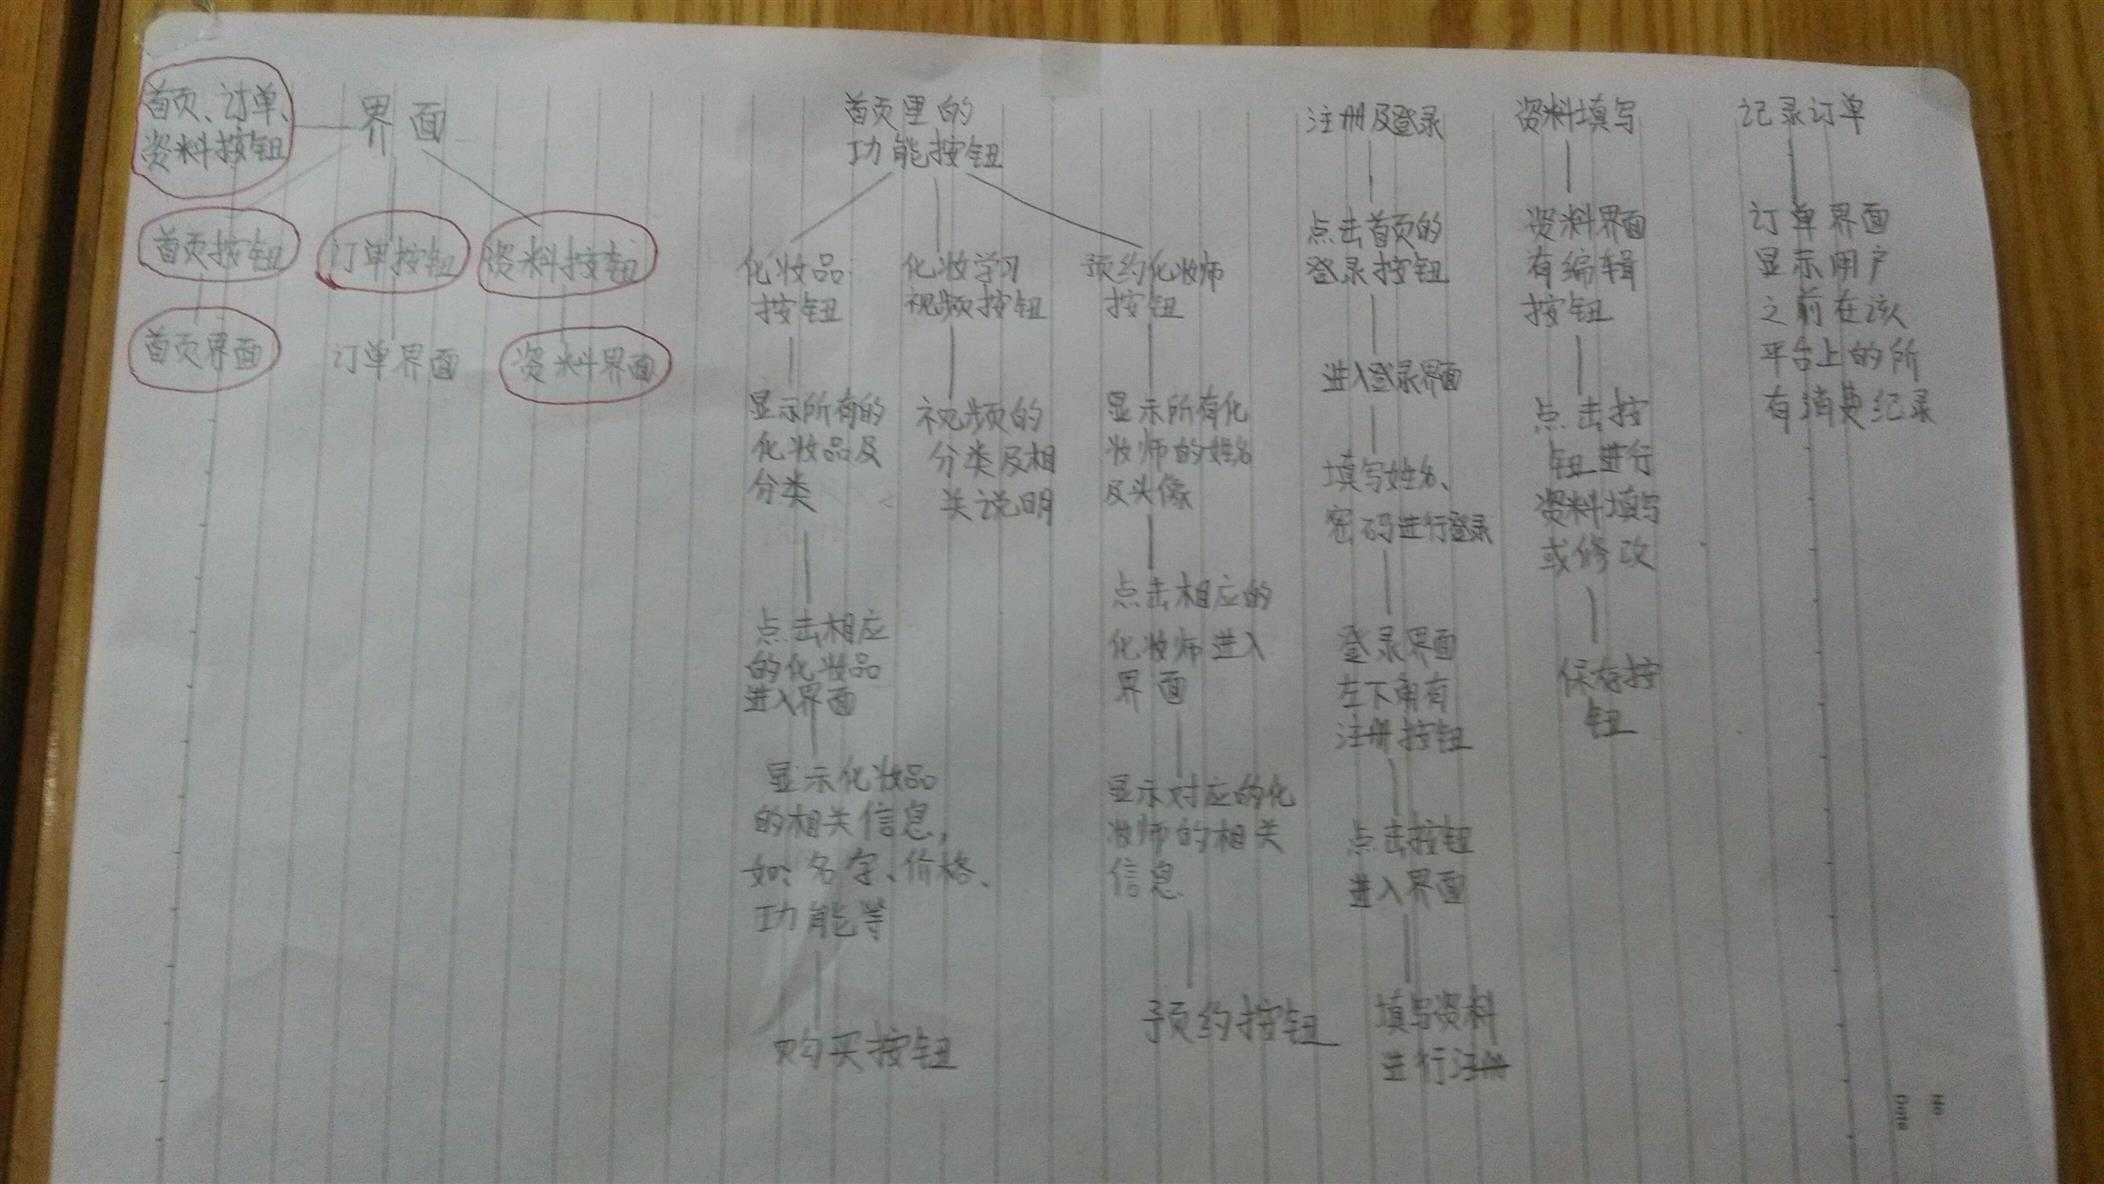 首页、订单、
资料按钮
界面
首页按钮
订单按钮
资料按钮
首页界面
订单界面
资料界面
首页里的
功能按钮
化妆品
按钮
显示所有的
化妆品及
分类
点击相应
的化妆品
进入界面
显示化妆品
的相关信息,
如:名字、价格、
功能等
购买按钮
化妆学习
视频按钮
视频的
分类及相
关说明
预约化妆师
按钮
显示所有化
妆师的姓名
及头像
点击相应的
化妆师进入
界面
显示对应的化
妆师的相关
信息
预约按钮
注册及登录
点击首页的
登录按钮
进入登录界面
填写姓名、
密码进行登录
登录界面
左下角有
注册按钮
点击按钮
进入界面
填写资料
进行注册
资料填写
资料界面
有编辑
按钮
点击按
钮进行
资料填写
或修改
保存按
钮
记录订单
订单界面
显示用户
之前在该
平台上的所
有消费纪录
No
Date